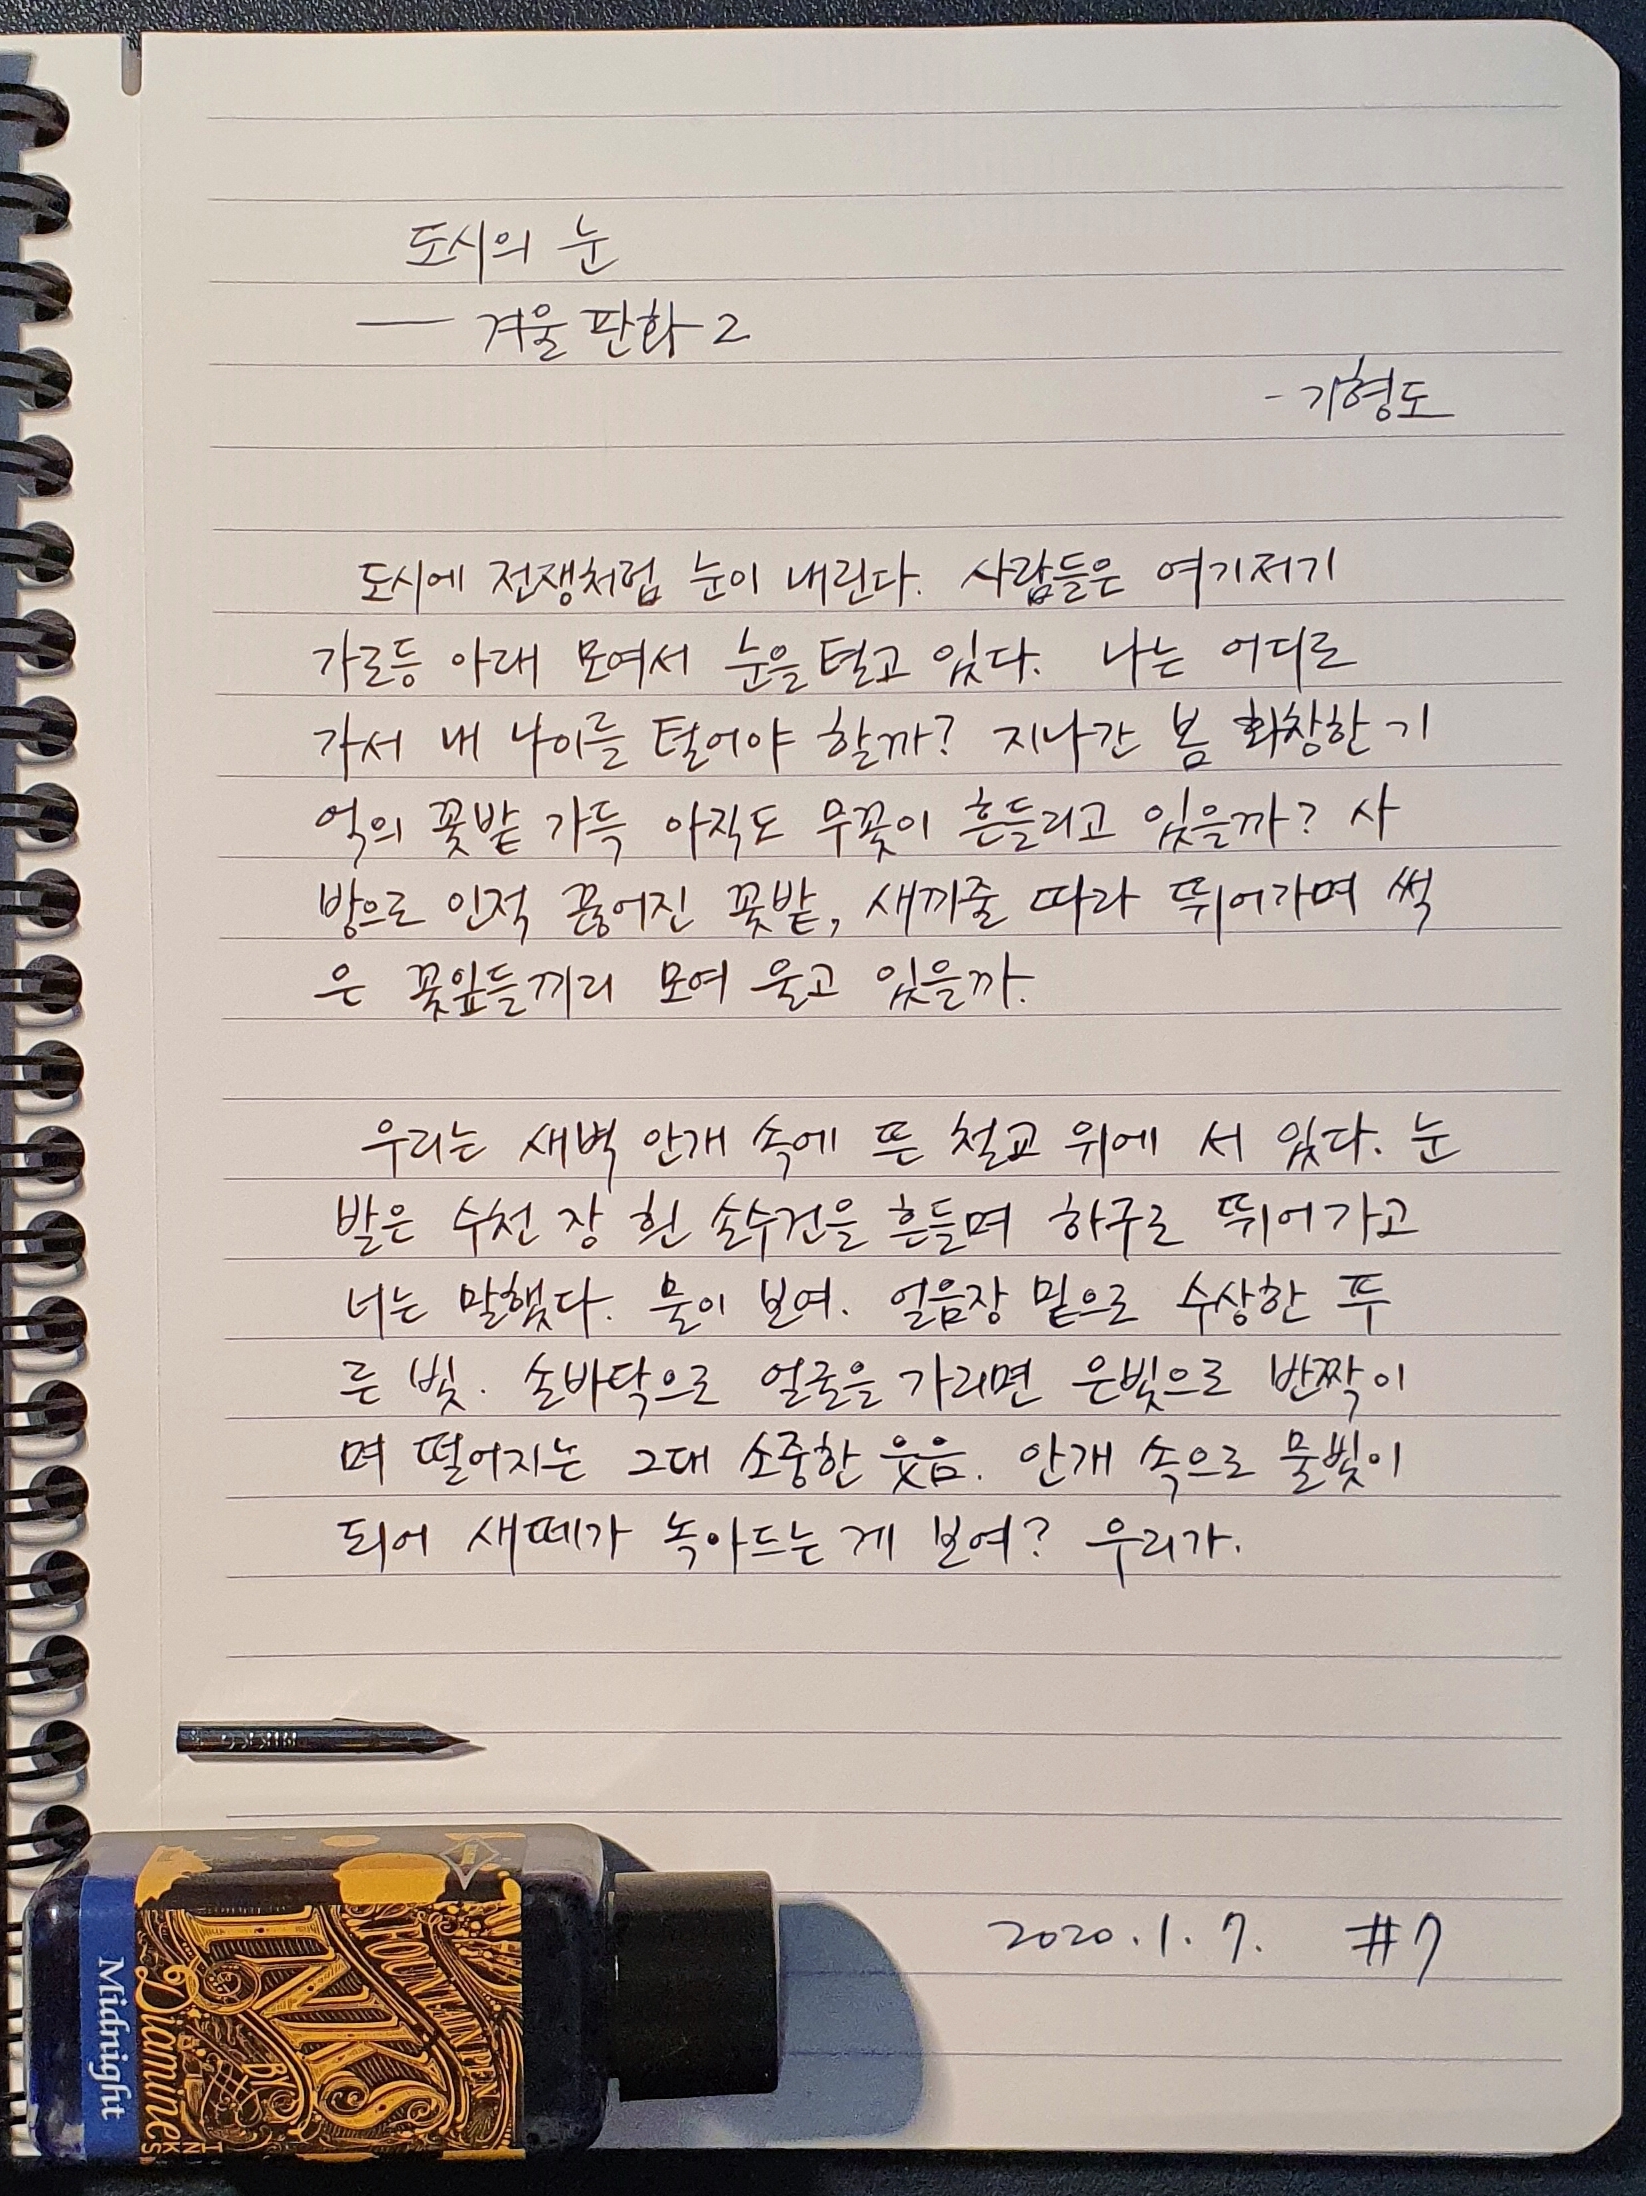 도시의 눈
— 겨울 판화 2
- 기형도
도시에 전쟁처럼 눈이 내린다. 사람들은 여기저기
가로등 아래 모여서 눈을 털고 있다. 나는 어디로
가서 내 나이를 털어야 할까? 지나간 봄 화창한 기
억의 꽃밭 가득 아직도 무꽃이 흔들리고 있을까? 사
방으로 인적 끊어진 꽃밭, 새끼줄 따라 뛰어가며 썩
은 꽃잎들끼리 모여 울고 있을까.
우리는 새벽 안개 속에 뜬 철교 위에 서 있다. 눈
발은 수천 장 흰 손수건을 흔들며 하구로 뛰어가고
너는 말했다. 물이 보여. 얼음장 밑으로 수상한 푸
른 빛. 손바닥으로 얼굴을 가리면 은빛으로 반짝이
며 떨어지는 그대 소중한 웃음. 안개 속으로 물빛이
되어 새떼가 녹아드는 게 보여? 우리가.
ZIKKO
2020.1.7. #7
FOUNTAIN PEN
INKS
BY
Diamine
INKS
Midnight